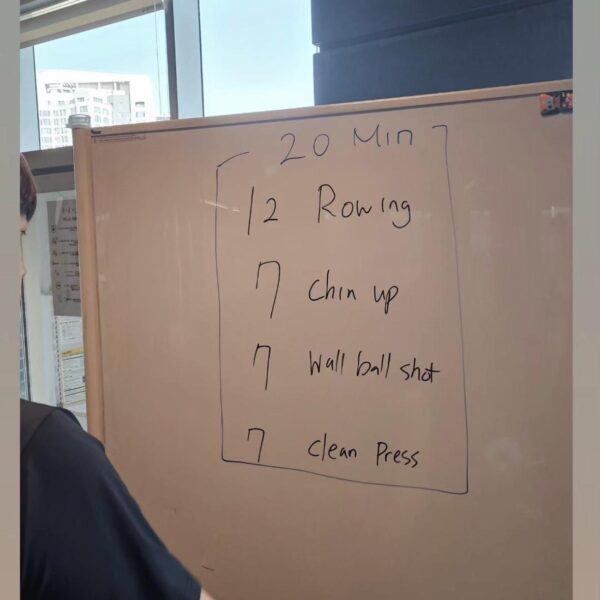 20 Min
12 Rowing
7 Chin up
7 Wall ball shot
7 Clean Press